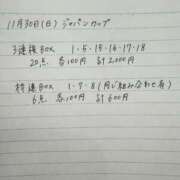 11月30日(日) ジャパンカップ
3連複BOX 1・5・15・16・17・18
20点 各100円 計2,000円
枠連BOX 1・7・8(同じ組み合わせ有)
6点 各100円 計600円